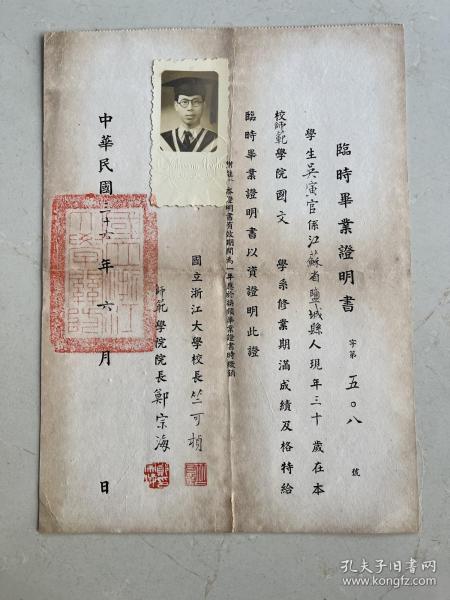 臨時畢業證明書
字第五〇八號
學生吳寅官係江蘇省鹽城縣人現年三十歲在本
校師範學院國文學系修業期滿成績及格特給
臨時畢業證明書以資證明此證
證明書有效期間為一年應於換領畢業證書時繳銷
國立浙江大學校長竺可楨
師範學院院長鄭宗海
中華民國三十六年六月日
國立浙江大學關防
孔夫子旧书网
www.kongfz.com